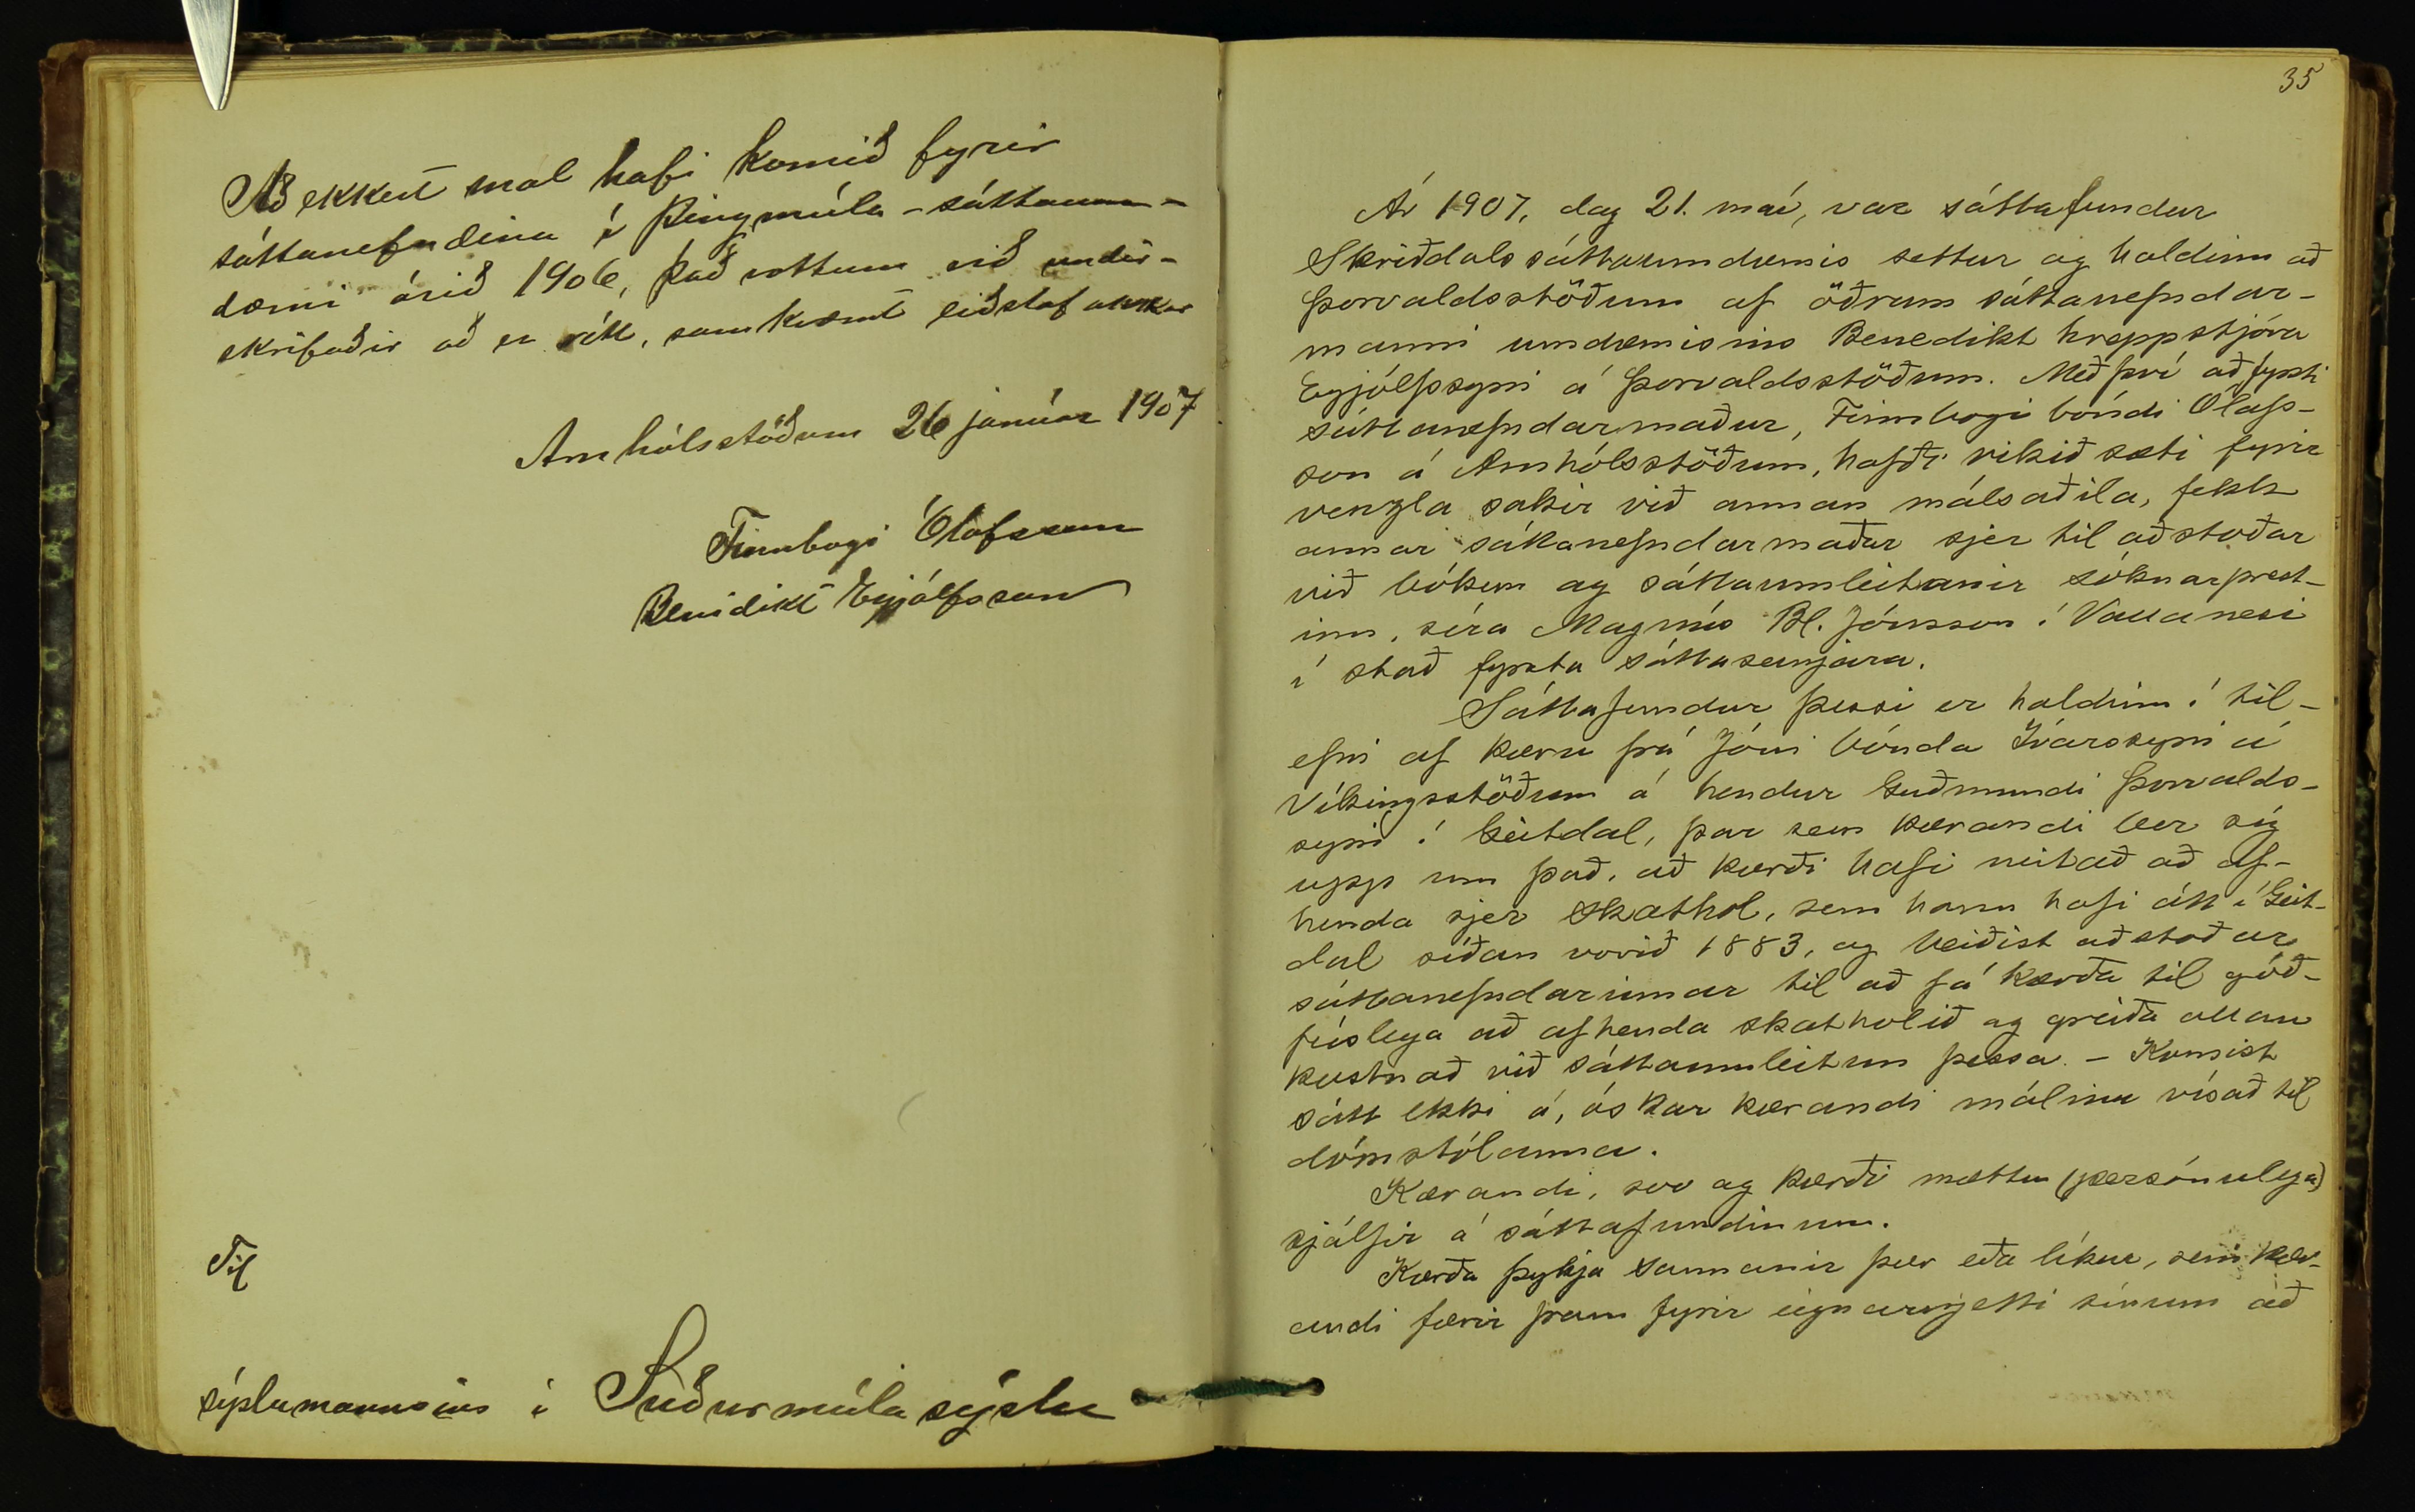 Að ekkert mál hafi komið fyrir
sáttanefndina í Þingmúla-sáttaum-
dæmi árið 1906, það vottum við undir-
skrifaðir að er rétt, samkvæmt eiðstaf okkar
Arnhólsstöðum 26 janúar 1907
Finnbogi Ólafsson
Benidikt Eyjólfsson
Til
sýslumannsins í Suðurmúlasýslu
35
Ár 1907, dag 21. maí, var sáttafundur
Skriðdalssáttaumdæmis settur og haldinn að
Þorvaldsstöðum af öðrum sáttanefndar-
manni umdæmisins Benedikt hreppstjóra
Eyjólfssyni á Þorvaldsstöðum. Með því að fyrsti
sáttanefndarmaður, Finnbogi bóndi Ólafs-
son á Arnhólsstöðum, hafði vikið sæti fyrir
vengla sakir við annan málsaðila, fekk
annar sáttanefndarmaður sjer til aðstoðar
við bókun og sáttaumleitanir sóknarprest-
inn, síra Magnús Bl. Jónsson í Vallanesi
í stað fyrsta sáttasemjara.
Sáttafundur þessi er haldinn í til-
efni af kæru frá Jóni bónda Ívarssyni á
Víkingsstöðum á hendur Guðmundi Þorvalds-
syni í Geitdal, þar sem kærandi ber sig
upp um það, að kærði hafi neitað að af-
henda sjer skathol, sem hann hafi átt í Geit-
dal síðan vorið 1883, og beiðist aðstoðar
sáttanefndarinnar til að fá kærða til góð-
fúslega að afhenda skatholið og greiða allan
kostnað við sáttaumleitun þessa. – Komist
sátt ekki á, óskar kærandi málinu vísað til
dómstólanna.
Kærandi, svo og kærði mættu (persónulega)
sjálfir á sáttafundinum.
Kærða þykja sannanir þær eða líkur, sem kær-
andi færir fram fyrir eignarrjetti sínum að